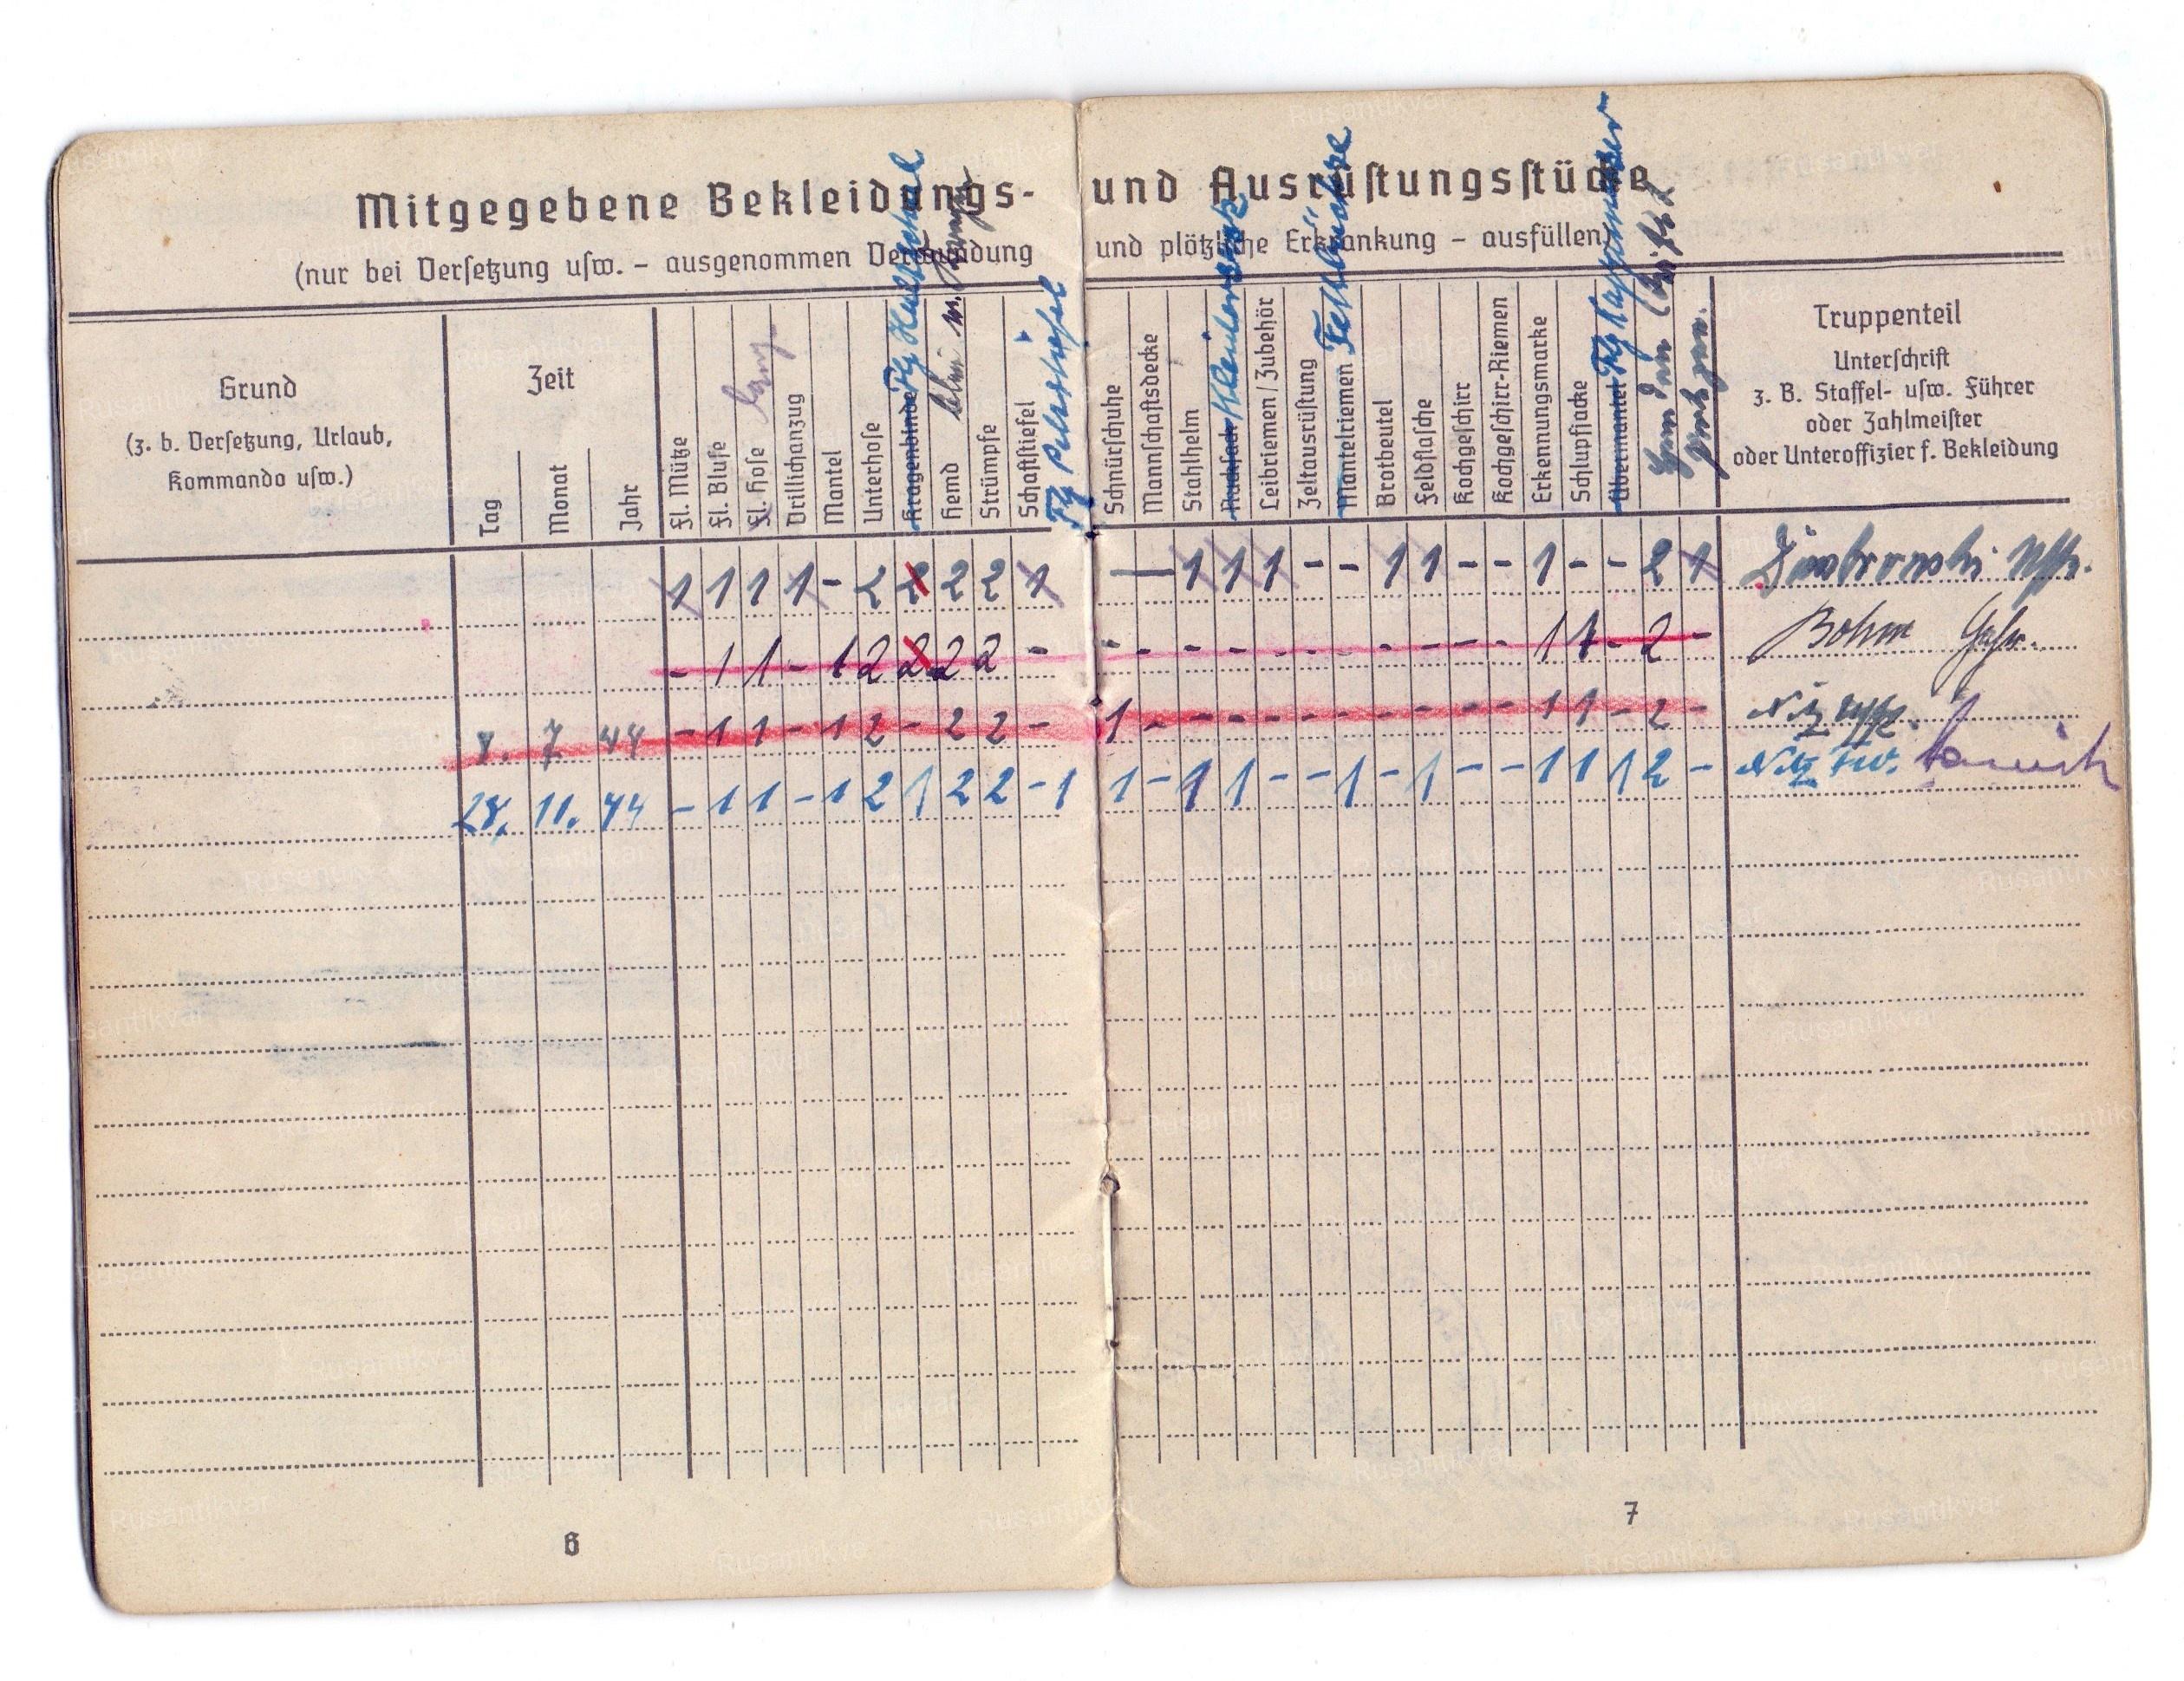 Mitgegebene Bekleidungs- und Ausrüstungsstücke
(nur bei Versetzung usw. – ausgenommen Verwundung und plötzliche Erkrankung – ausfüllen)
Grund
(z. b. Versetzung, Urlaub,
Kommando usw.)
Zeit
Tag
Monat
Jahr
Fl. Mütze
Fl. Bluse
Fl. Hose lang
Drillichanzug
Mantel
Unterhose
Kragenbinde Halsschal
Hemd blau m.
Strümpfe
Schaftstiefel
Pelzstiefel
Schnürschuhe
Mannschaftsdecke
Stahlhelm
Rucksack Kleidersack
Leibriemen / Zubehör
Zeltausrüstung
Mantelriemen
Brotbeutel
Feldflasche
Kochgeschirr
Kochgeschirr-Riemen
Erkennungsmarke
Schlupfjacke
Übermantel
Truppenteil
Unterschrift
z. B. Staffel- usw. Führer
oder Zahlmeister
oder Unteroffizier f. Bekleidung
1 1 1 1 - 2 2 2 2 1 — 1 1 1 - - 1 1 - - 1 - - 2 1
- 1 1 - 1 2 2 2 2 - - - - - - - - - - - - 1 1 - 2 - Böhm Gefr.
8. 7 44 - 1 1 - 1 2 - 2 2 - 1 - - - - - - - - - - 1 1 - 2 -
28. 11. 44 - 1 1 - 1 2 1 2 2 - 1 1 - 1 1 - - 1 - 1 - - 1 1 1 2 -
6
7
Rusantikvar